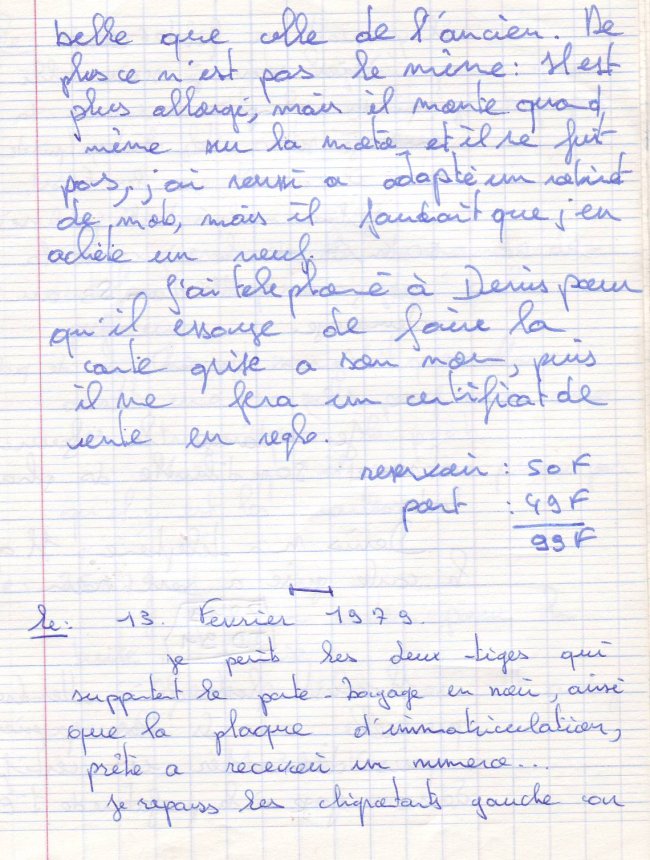 belle que celle de l'ancien. De
plus ce n'est pas le même : Il est
plus allongé, mais il monte quand
même sur la moto et il ne fuit
pas, j'ai reussi a adapté un robinet
de mob, mais il faudrait que j'en
achète un neuf.
J'ai telephoné à Denis pour
qu'il essaye de faire la
carte grise a son nom, puis
il me fera un certificat de
vente en regle.
reservoir : 50 F
port : 49 F
99 F
le : 13. Fevrier 1979.
je peints les deux tiges qui
supportent le porte-bagage en noir, ainsi
que la plaque d'immatriculation,
prête a recevoir un numero...
Je repass les clignotants gauche car